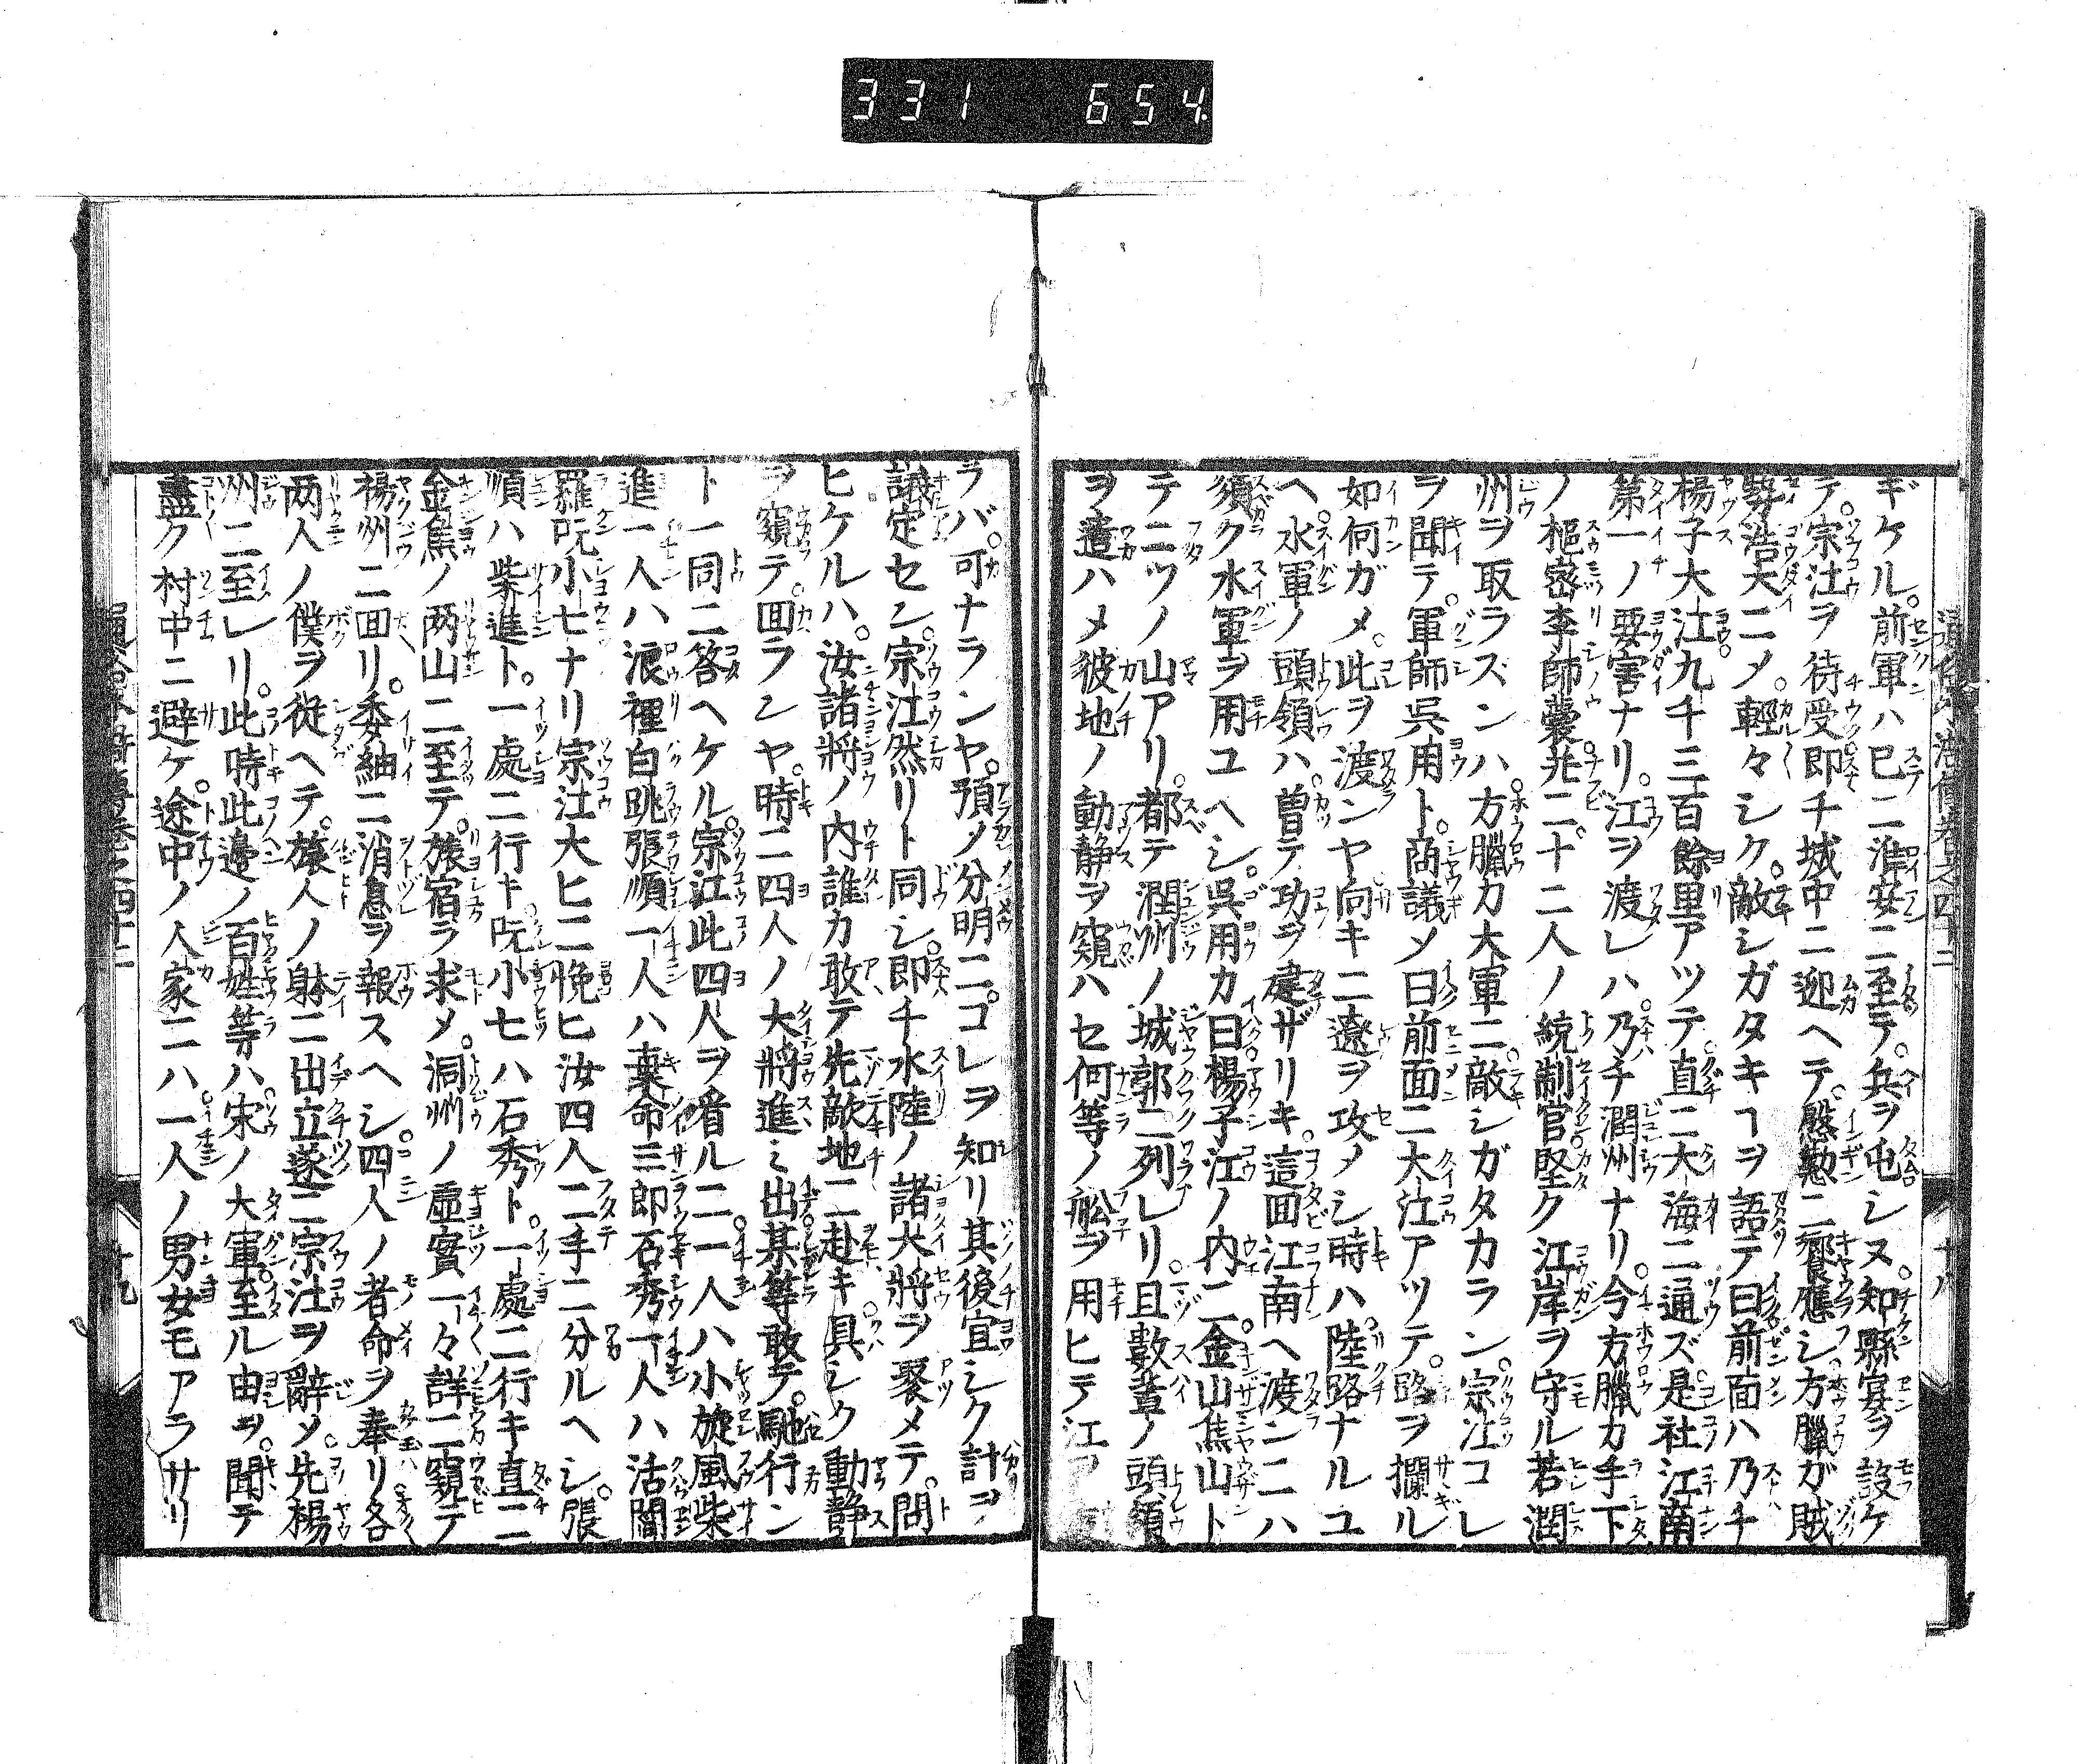 331 654
ギケル。前軍ハ已ニ淮安ニ至テ。兵ヲ屯シヌ。知縣宴ヲ設ケ
テ。宗江ヲ待受即チ城中ニ迎ヘテ。慇懃ニ饗應シ方臘ガ賊
勢浩大ニメ。輕々シク。敵シガタキヿヲ語テ曰前面ハ乃チ
楊子大江九千三百餘里アツテ。直ニ大海ニ通ズ是社江南
第一ノ要害ナリ。江ヲ渡レハ乃チ潤州ナリ。今方臘カ手下
ノ樞密李師嚢并ニ十二人ノ統制官堅ク江岸ヲ守ル若潤
州ヲ取ラズンハ。方臘カ大軍ニ敵シガタカラン。宗江コレ
ヲ聞テ。軍師呉用ト。商議メ曰前面ニ大江アツテ。路ヲ攔ル
如何ガメ。此ヲ渡ンヤ向キニ遼ヲ攻メシ時ハ。陸路ナルユ
ヘ。水軍ノ頭領ハ。曽テ功ヲ建ザリキ。這回江南ヘ渡ンニハ
須ク水軍ヲ用ユヘシ。呉用カ曰楊子江ノ内ニ。金山焦山ト
テ二ツノ山アリ。都テ潤州ノ城郭ニ列レリ。且數輩ノ頭領
ヲ遣ハメ彼地ノ動静ヲ窺ハセ何等ノ舩ヲ用ヒテ江ヲ
ラバ。可ナランヤ。預メ分明ニ。コレヲ知リ其後宜シク計ヲ
議定セン。宗江然リト同シ。即チ水陸ノ諸大將ヲ聚メテ。問
ヒケルハ。汝諸將ノ内誰カ敢テ先敵地ニ赴キ具シク動静
ヲ窺テ。回ランヤ。時ニ四人ノ大將進ミ出某等敢テ。馳行ン
ト一同ニ答ヘケル。宗江此四人ヲ看ルニ。一人ハ小旋風柴
進一人ハ浪裡白跳張順一人ハ棄命三郎石秀一人ハ活閻
羅阮小七ナリ宗江大ヒニ悦ヒ汝四人二手ニ分ルヘシ。張
順ハ柴進ト。一處ニ行キ阮小七ハ石秀ト。一處ニ行キ直ニ
金焦ノ两山ニ至テ。旅宿ヲ求メ。洞州ノ虚實一々詳ニ窺テ
楊州ニ回リ。委細ニ消息ヲ報スヘシ。四人ノ者命ヲ奉リ各
两人ノ僕ヲ従ヘテ。旅人ノ躰ニ出立遂ニ宗江ヲ辭メ。先楊
州ニ至レリ。此時此邉ノ百姓等ハ宋ノ大軍。至ル由ヲ。聞テ
盡ク村中ニ避ケ。途中ノ人家ニハ一人ノ男女モアラサリ